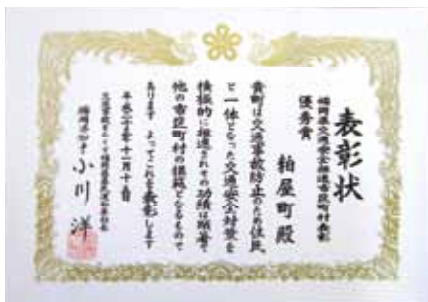 表彰状
福岡県交通安全推進市区町村表彰
優秀賞
粕屋町殿
貴町は交通事故防止のため住民
と一体となった交通安全対策を
積極的に推進されその功績は顕著で
他の市区町村の模範となるもので
あります よってこれを表彰します
平成二十五年十一月十五日
福岡県知事 小川 洋